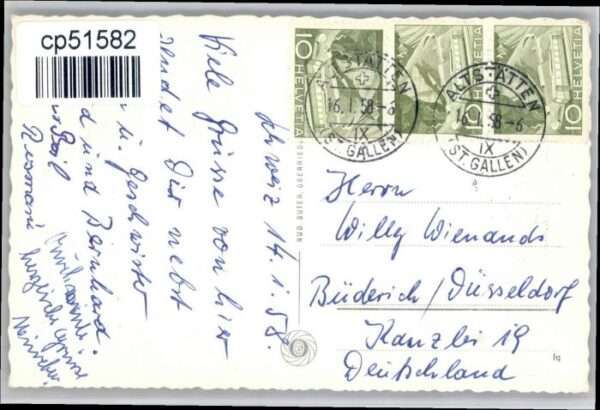 cp51582
Schweiz 14.1.58.
Viele Grüsse von hier
sendet Dir nebst
u. Geschwister
und Bernhard.
herzliche Grüsse
HELVETIA 10
HELVETIA 10
HELVETIA 10
ALTSTÄTTEN
16.1.58-6
IX
(ST. GALLEN)
ALTSTÄTTEN
16.1.58-6
IX
(ST. GALLEN)
Herrn
Willy Wienands
Büderich/Düsseldorf
Kanzlei 19
Deutschland